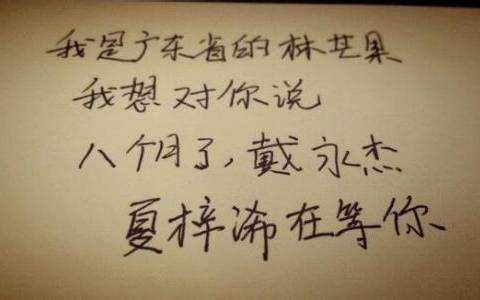 我是广东省的林芷果
我想对你说
八个月了,戴永杰
夏梓浠在等你